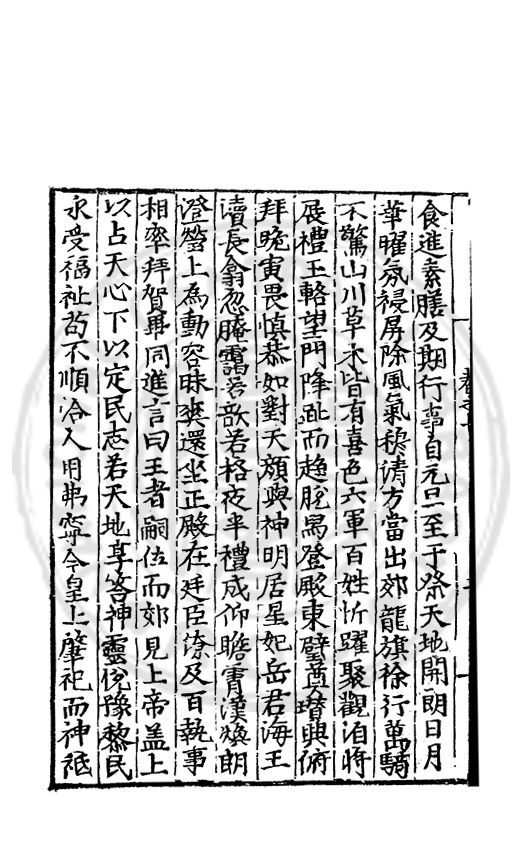 食進素膳及期行事自元旦至于祭天地開朗日月
華曜氛祲屏除風氣穆清方當出郊龍旗徐行萬騎
不驚山川草木皆有喜色六軍百姓忻躍聚觀洎將
展禮玉輅望門降趾而趨脫舄登殿東璧奠瓚興俯
拜晩寅畏慎恭如對天顔與神明居星妃岳君海王
瀆長翕忽晻靄若歆若格夜半禮成仰瞻霄漢煥朗
澄瑩上為動容昧爽還坐正殿在廷臣僚及百執事
相率拜賀再同進言曰王者嗣位而郊見上帝盖上
以占天心下以定民志若天地享答神靈悅豫黎民
永受福祉苟不順洽人用弗寧今皇上肇祀而神祗